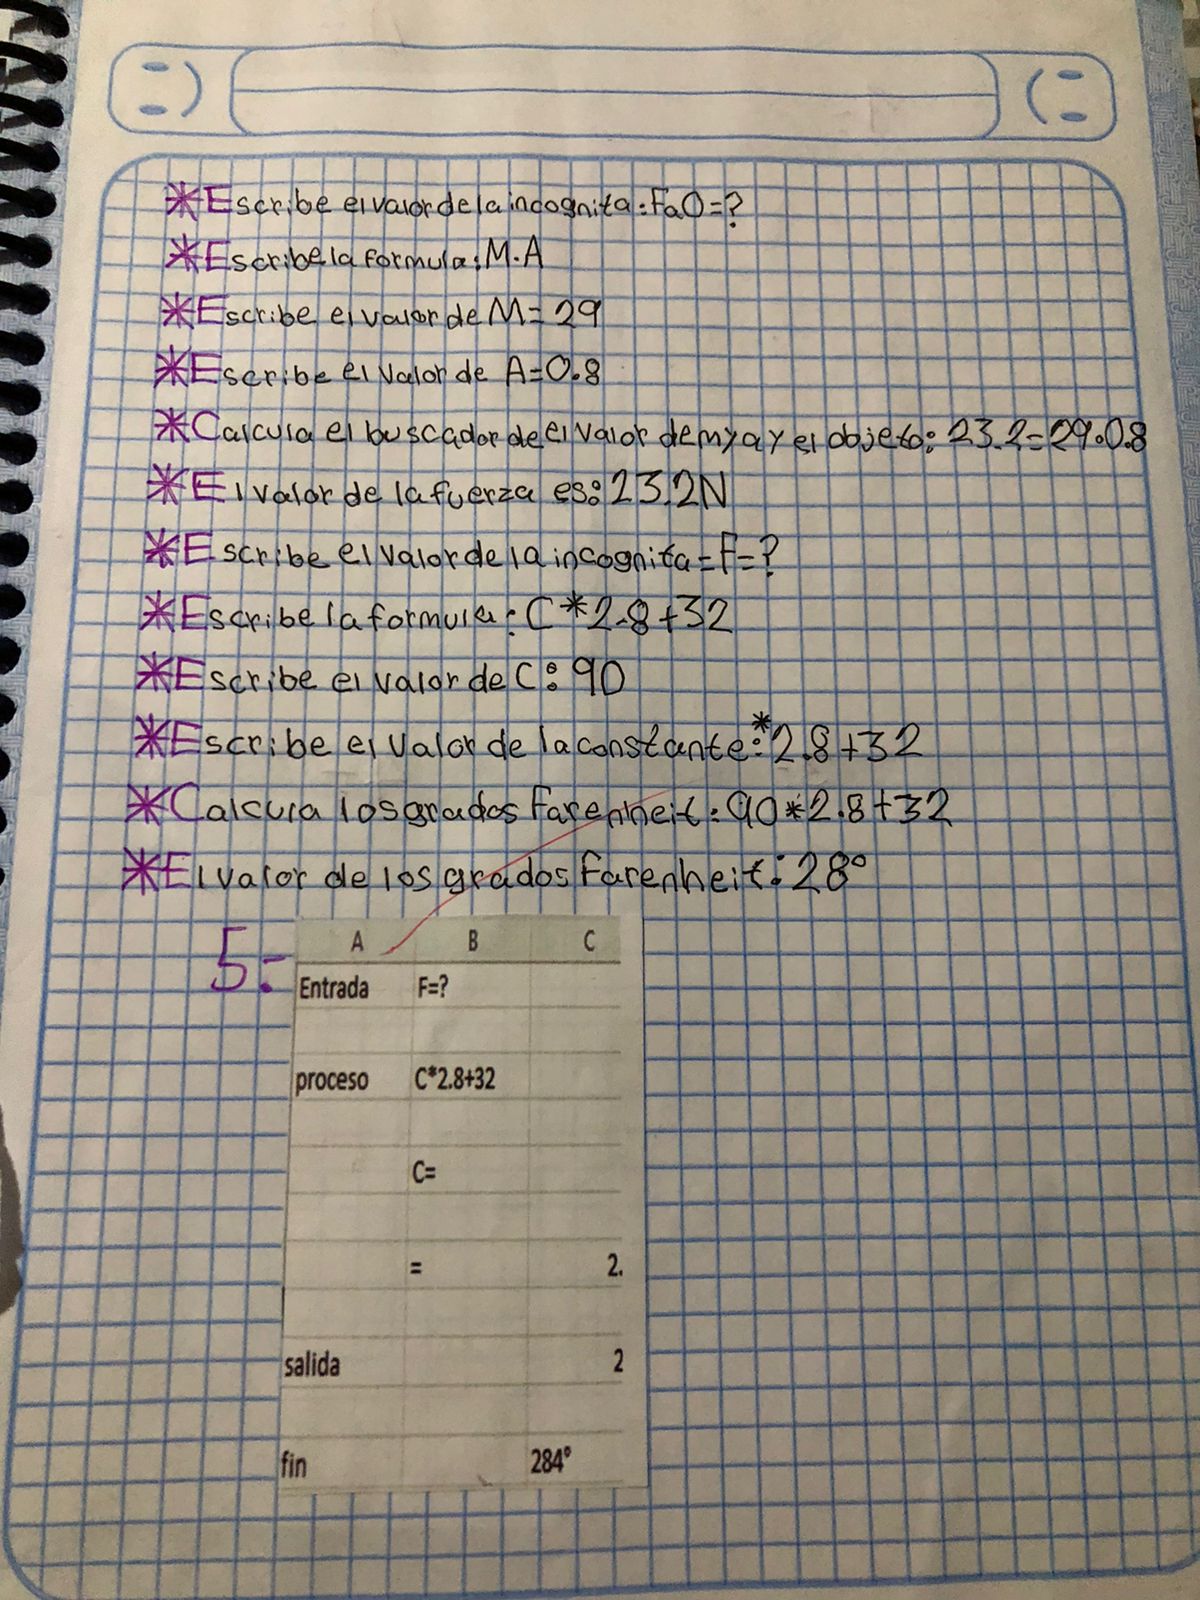 *Escribe el valor de la incognita: FaO=?
*Escribe la formula: M.A
*Escribe el valor de M= 29
*Escribe el valor de A=0.8
*Calcula el buscador de el valor de m y a y el objeto: 23.2=29.0.8
*El valor de la fuerza es: 23.2N
*Escribe el valor de la incognita=F=?
*Escribe la formula: C*2.8+32
*Escribe el valor de C: 90
*Escribe el valor de la constante:*2.8+32
*Calcula los grados Farenheit: 90*2.8+32
*El valor de los grados Farenheit: 28°
5:-
A B C
Entrada F=?
proceso C*2.8+32
C=
= 2.
salida 2
fin 284°